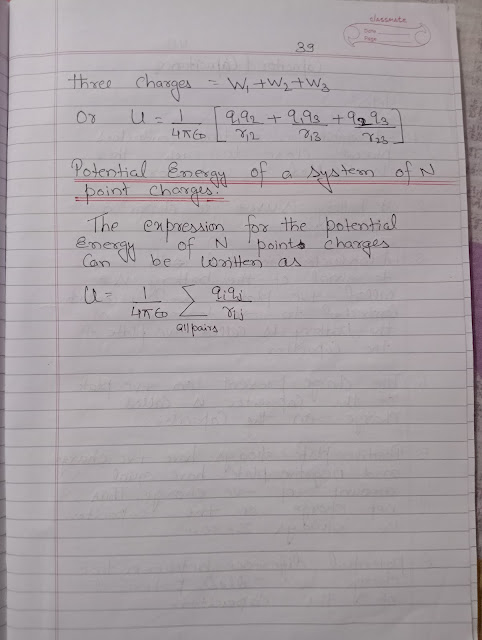 classmate
Date
Page
39
three charges = W₁+W₂+W₃
Or U = 1/4πε₀ [q₁q₂/r₁₂ + q₁q₃/r₁₃ + q₂q₃/r₂₃]
Potential Energy of a system of N
point charges:
The expression for the potential
Energy of N points charges
Can be written as
U = 1/4πε₀ Σ qᵢqⱼ/rᵢⱼ
all pairs